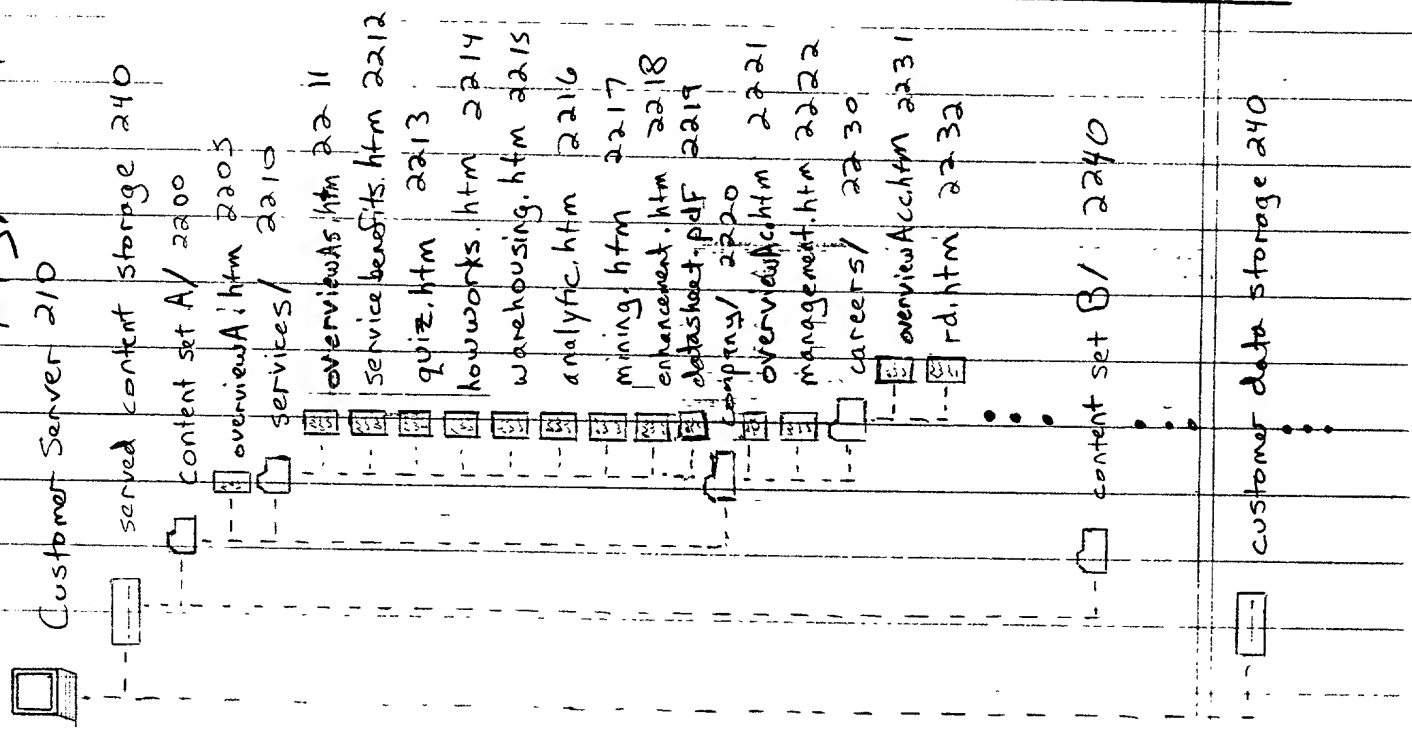 Customer Server 210
served content storage 240
content set A/ 2200
overviewA.htm 2205
services/ 2210
overviewAs.htm 2211
servicebenefits.htm 2212
quiz.htm 2213
howworks.htm 2214
warehousing.htm 2215
analytic.htm 2216
mining.htm 2217
enhancement.htm 2218
datasheet.pdf 2219
company/ 2220
overviewAc.htm 2221
management.htm 2222
careers/ 2230
overviewAcc.htm 2231
rd.htm 2232
content set B/ 2240
customer data storage 240